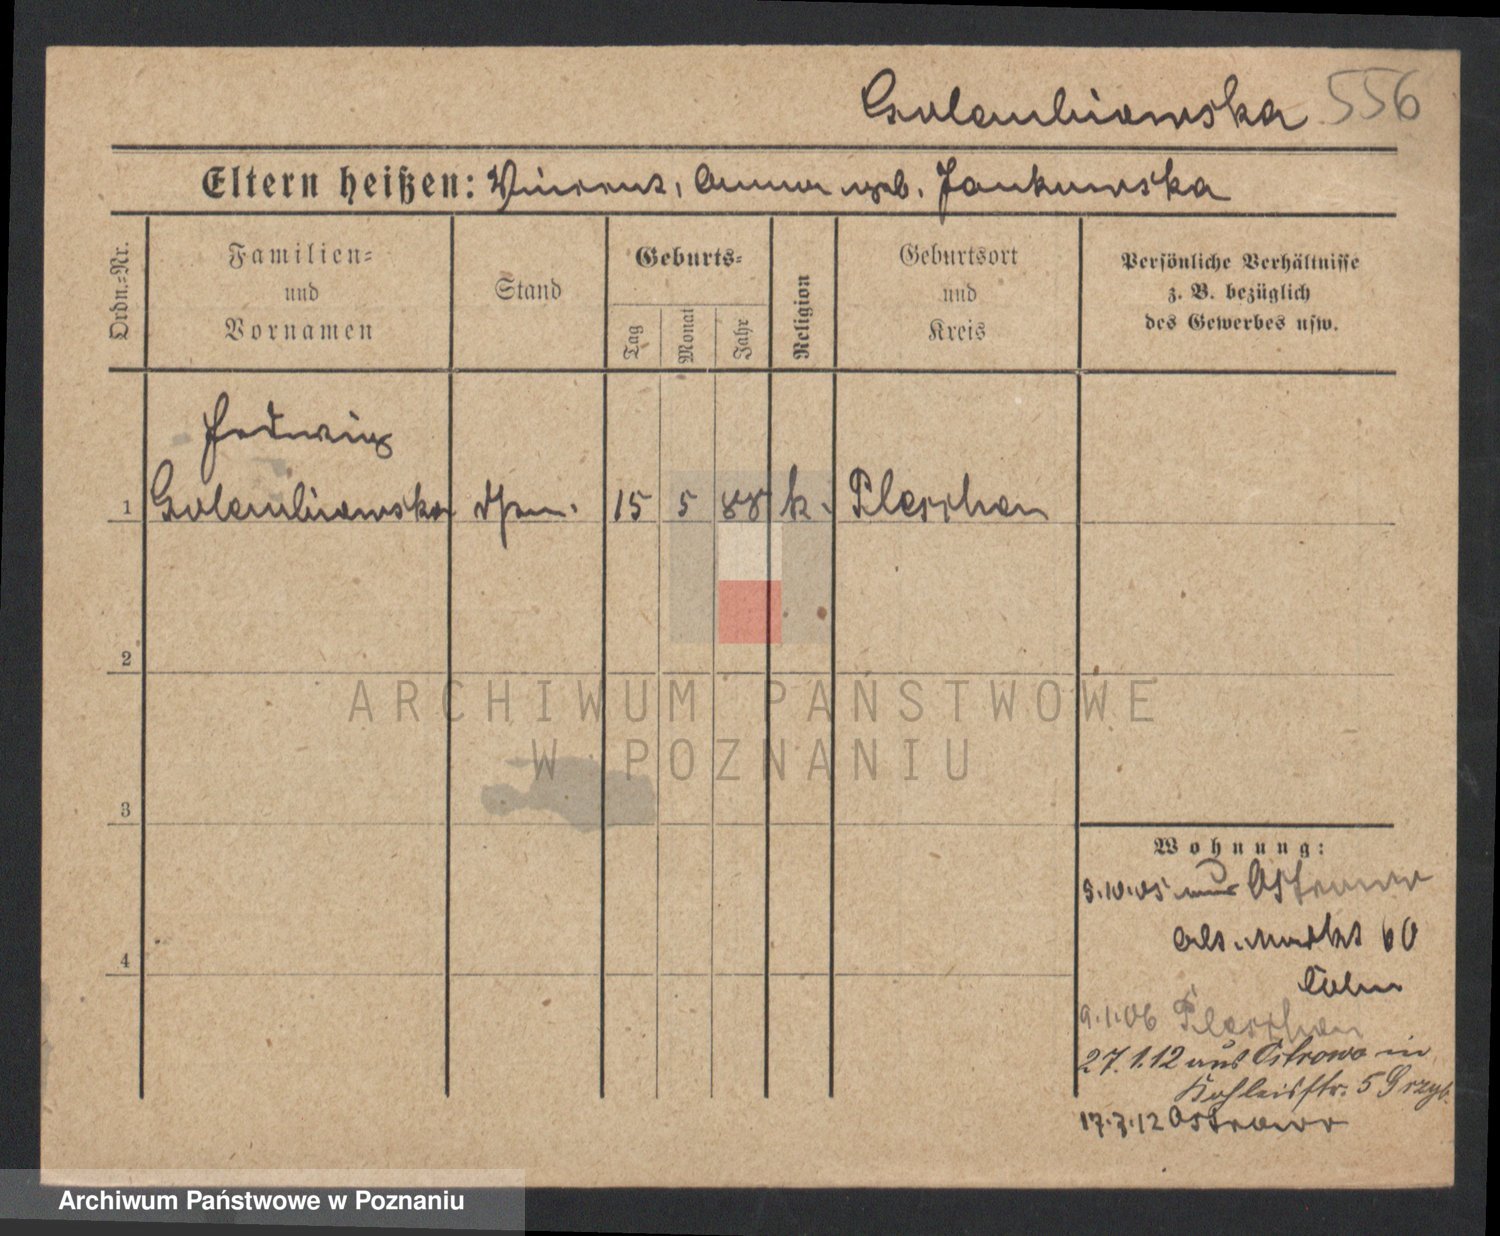 Golembiowska 556
Eltern heißen: Vincent, Anna geb. Jankowska
Ordn.=Nr.
Familien=
und
Vornamen
Stand
Geburts=
Tag
Monat
Jahr
Religion
Geburtsort
und
Kreis
Persönliche Verhältnisse
z. B. bezüglich
des Gewerbes usw.
Hedwig
1 Golembiowska 15 5 88 k. Pleschen
2
ARCHIWUM PAŃSTWOWE
W POZNANIU
3
4
Wohnung:
9.10.05 aus Ostrowo
Alt. Markt 60
Cohn
9.1.06 Pleschen
27.1.12 aus Ostrowo in
5 Grzyb.
17.3.12 Ostrowo
Archiwum Państwowe w Poznaniu